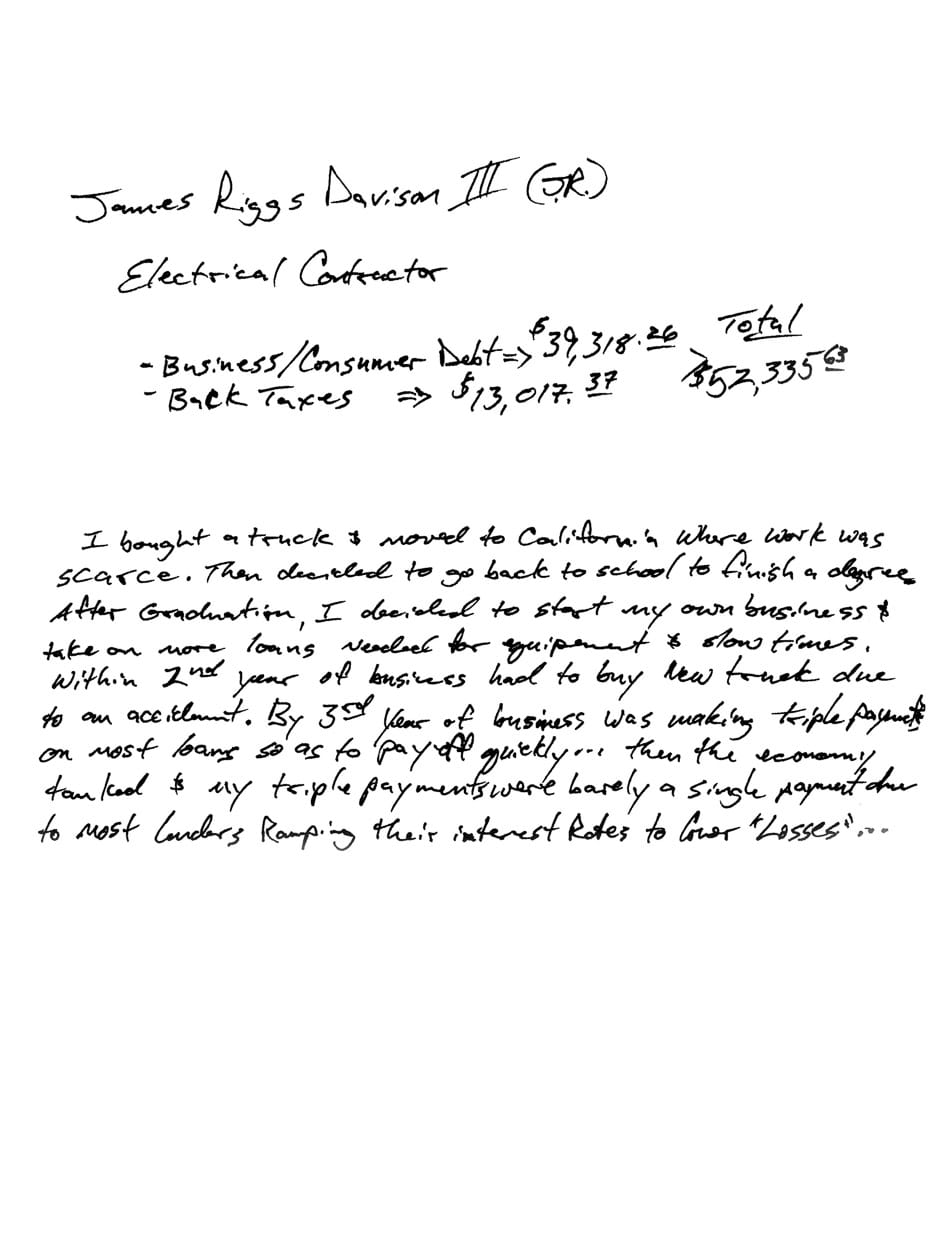 James Riggs Davison III (JR.)
Electrical Contractor
- Business/Consumer Debt => $39,318.26 > Total
- Back Taxes => $13,017.37 $52,335 63
I bought a truck & moved to California where work was
scarce. Then decided to go back to school to finish a degree.
After Graduation, I decided to start my own business &
take on more loans needed for equipement & slow times.
Within 2nd year of business had to buy New truck due
to an accident. By 3rd Year of business was making triple payments
on most loans so as to pay off quickly... then the economy
tanked & my triple payments were barely a single payment due
to most lenders Ramping their interest Rates to Cover "Losses"...